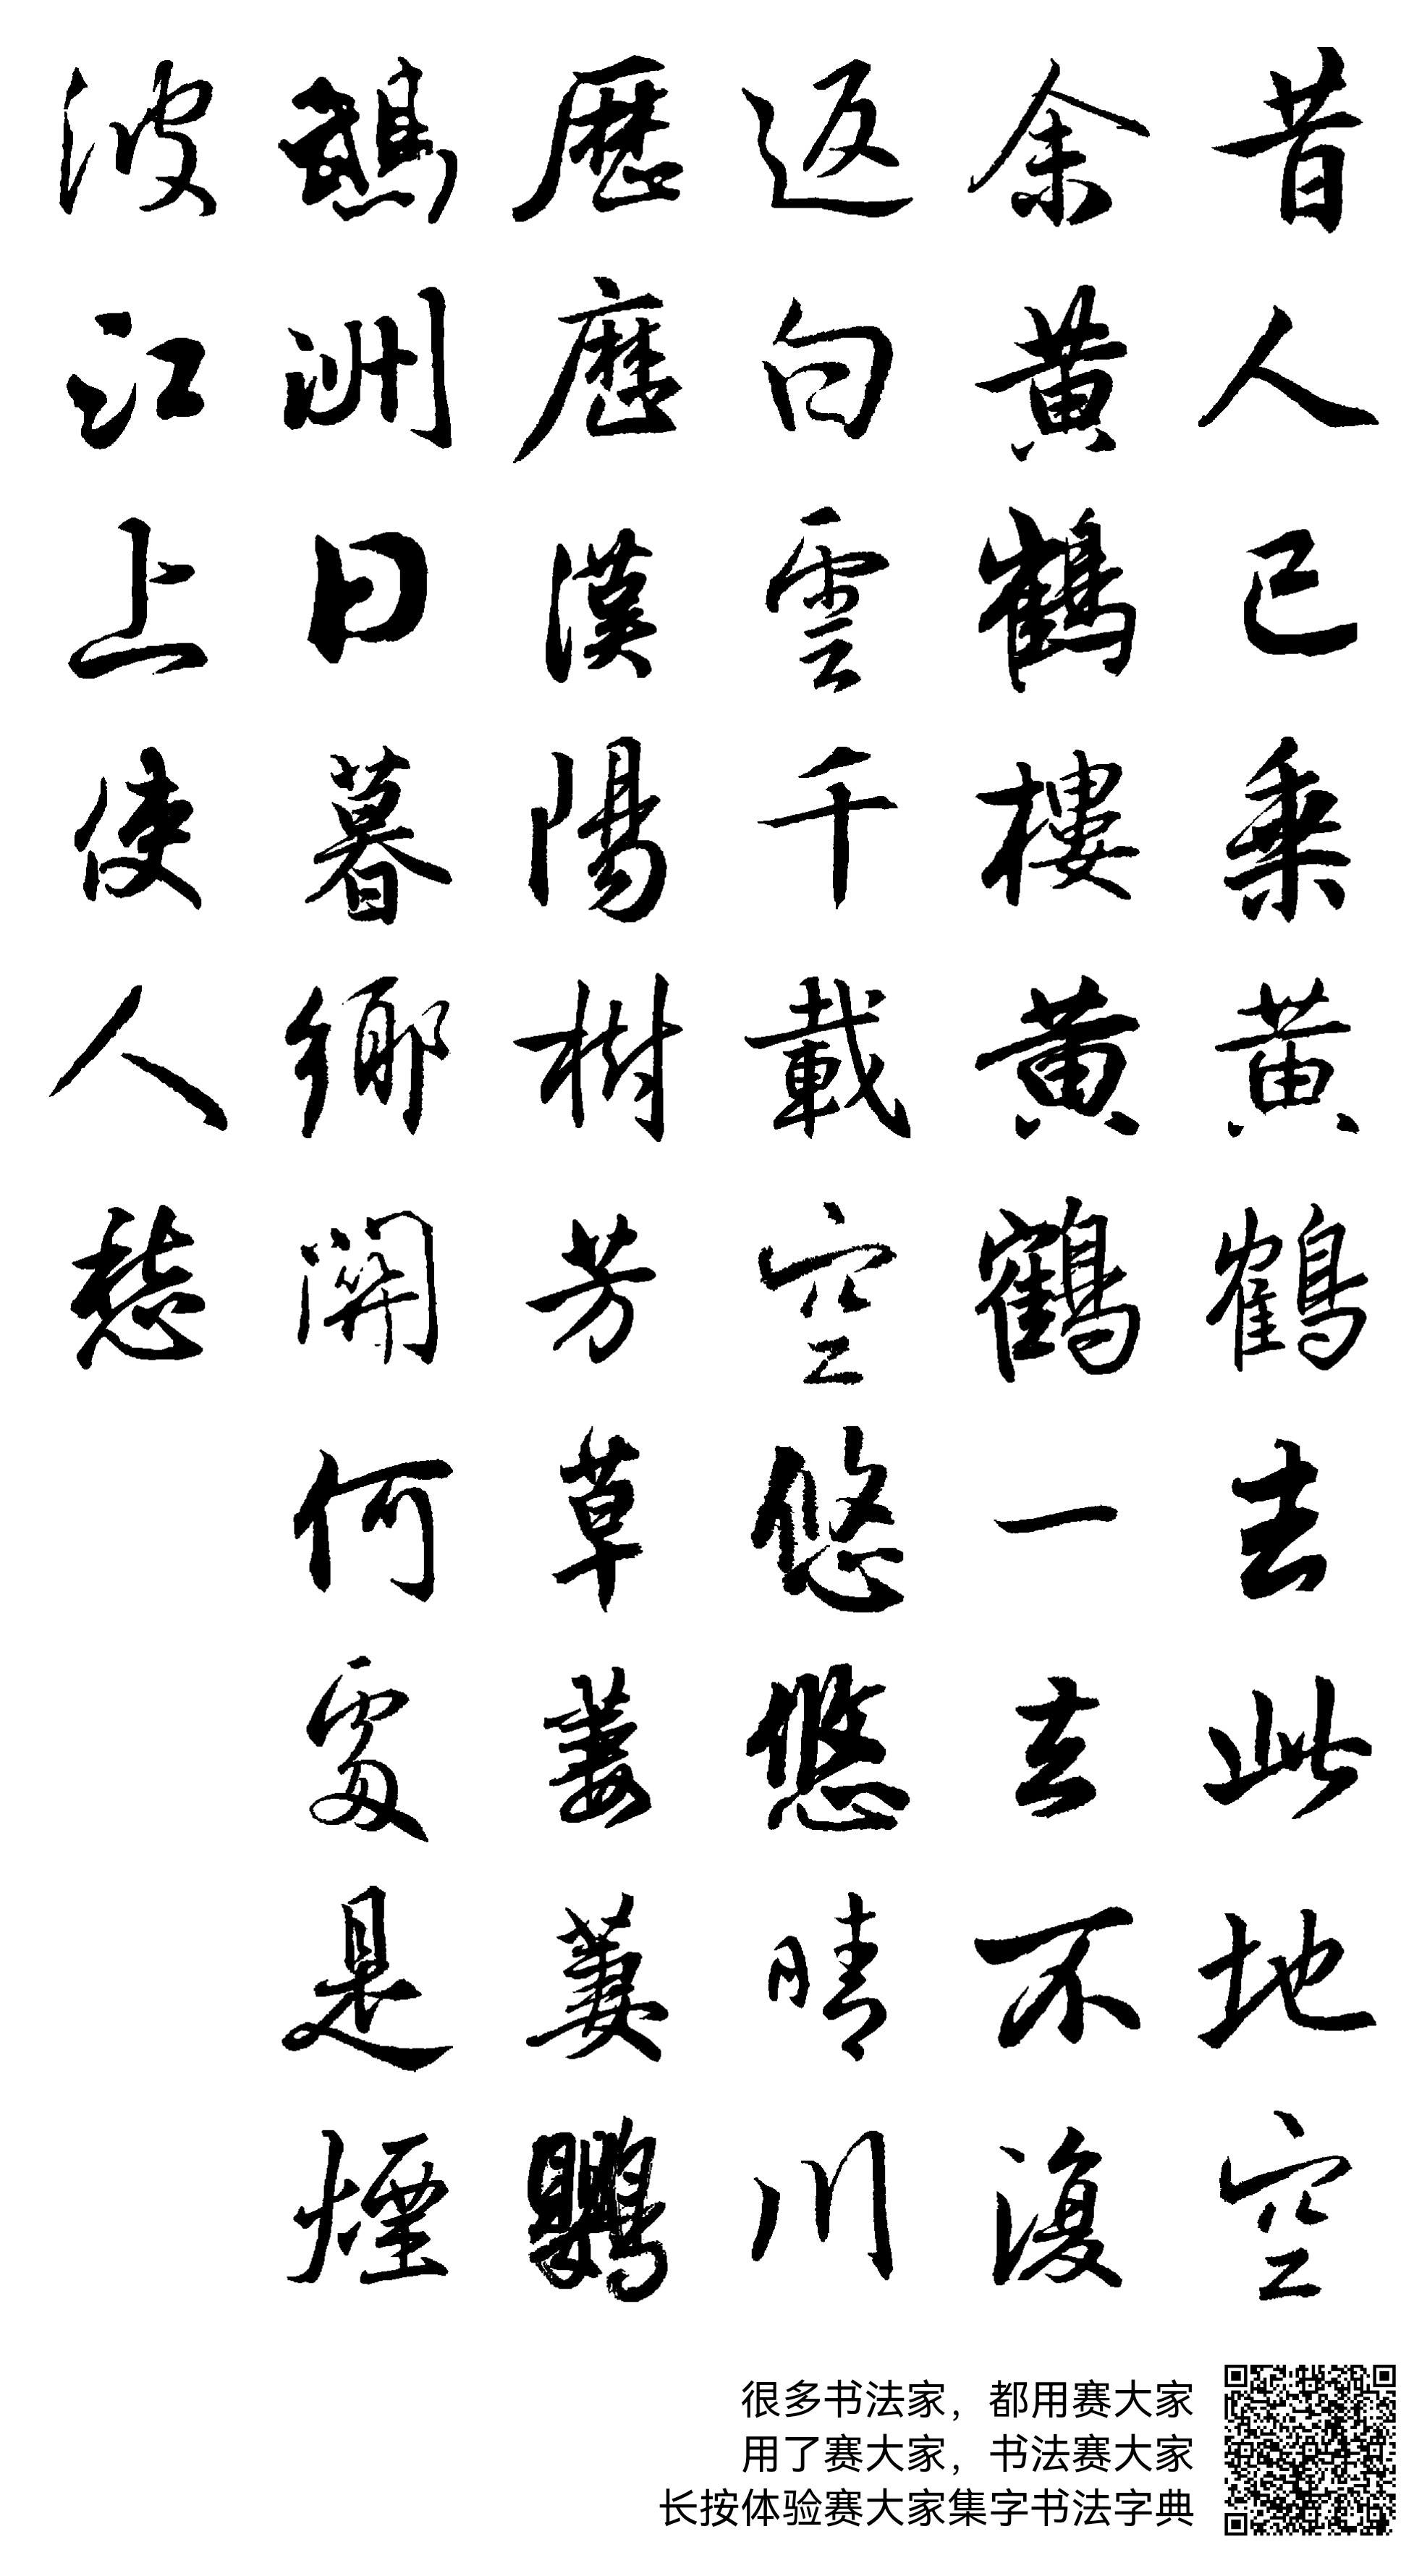 昔人已乘黃鶴去此地空
余黃鶴樓黃鶴一去不復
返白雲千載空悠悠晴川
歷歷漢陽樹芳草萋萋鸚
鵡洲日暮鄉關何處是煙
波江上使人愁
很多书法家，都用赛大家
用了赛大家，书法赛大家
长按体验赛大家集字书法字典